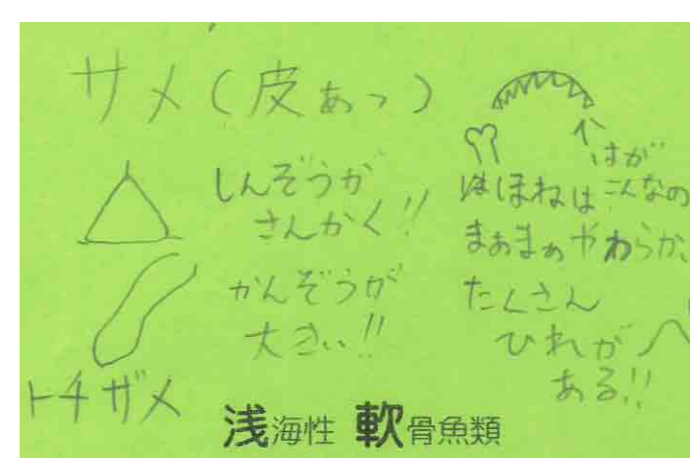 サメ(皮あっ)
しんぞうが
さんかく!!
かんぞうが
大きい!!
トチザメ
はが
こんなの
ほねは
まあまあやわらか、
たくさん
ひれが
ある!!
浅海性 軟骨魚類